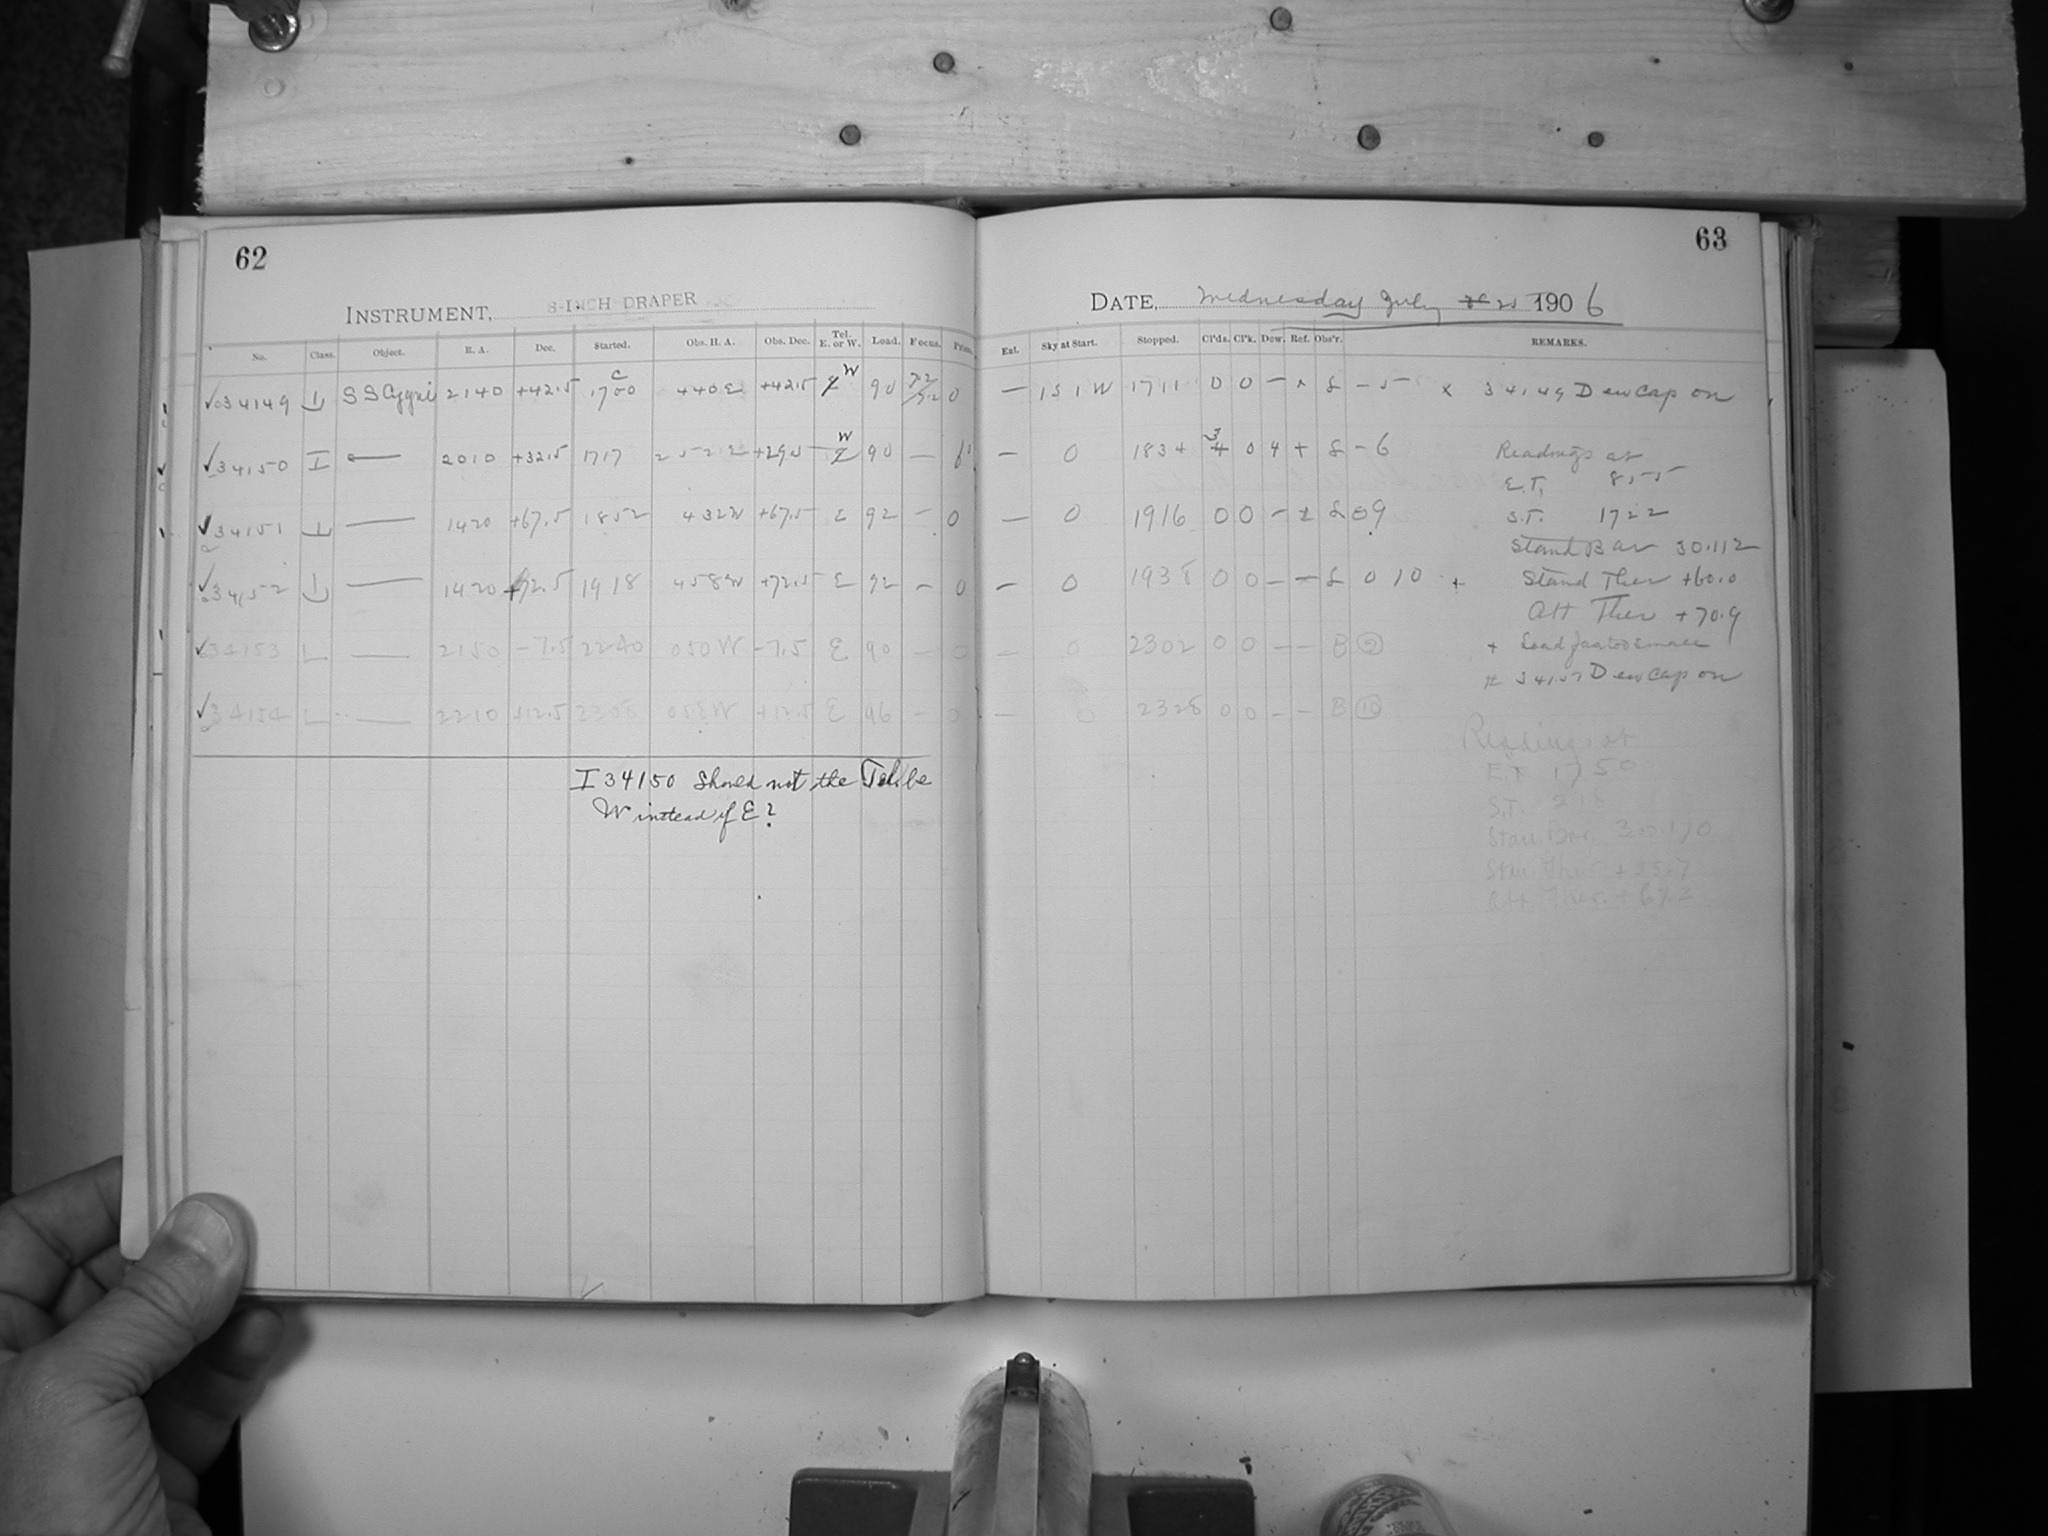 62
INSTRUMENT, 8-INCH DRAPER
No. Class. Object. R. A. Dec. Started. Obs. H. A. Obs. Dec. Tel. E. or W. Load. Focus. Pris.
34149 L SS Cygni 2140 +42.5 1700 440E +42.5 E W 90 0
34150 I — 2010 +32.5 1717 252E +29.5 E W 90 —
34151 L — 1420 +67.5 1852 432W +67.5 E 92 — 0
34152 L — 1420 +72.5 1918 458W +72.5 E 92 — 0
34153 L — 2150 -7.5 2240 050W -7.5 E 90 — 0
34154 L — 2210 +12.5 2308 058W +12.5 E 96 — 0
I 34150 Should not the Tel. be
W instead of E?
63
DATE, Wednesday July 1906
Ext. Sky at Start. Stopped. Cl'ds. Cl'k. Dew. Ref. Obs'r. REMARKS.
— 1S1W 1711 0 0 — x L - 5 x 34149 Dew Cap on
— 0 1834 3 4 0 4 + L - 6
— 0 1916 0 0 — L 0 9
— 0 1938 0 0 — — L 0 10
— 0 2302 0 0 — — B 9
— 0 2328 0 0 — — B 10
Readings at
E.T. 8.55
S.T. 1722
Stand Bar 30.112
+ Stand Ther +60.0
Att Ther +70.9
+ Lead too small
Dew Cap on
Readings at
E.T. 1750
S.T.
Stan. Bar. 30.170
Stan. Ther. +55.7
Att. Ther. +67.2